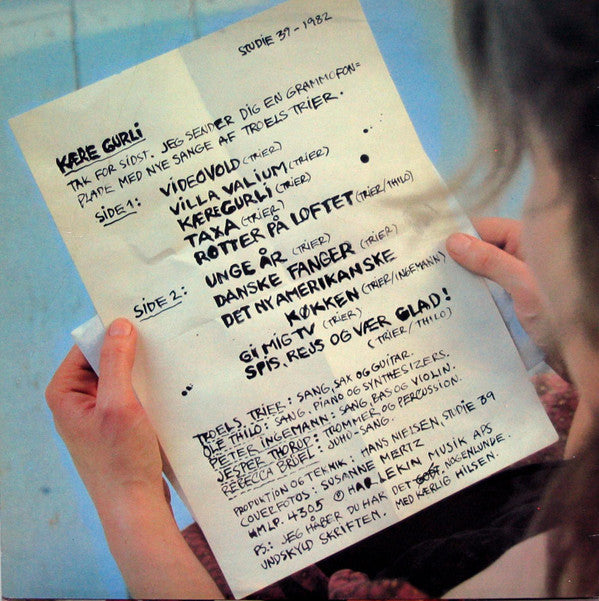 STUDIE 39 - 1982
KÆRE GURLI
TAK FOR SIDST. JEG SENDER DIG EN GRAMMOFON=
PLADE MED NYE SANGE AF TROELS TRIER.
SIDE 1: VIDEOVOLD (TRIER)
VILLA VALIUM (TRIER)
KÆRE GURLI (TRIER)
TAXA (TRIER)
ROTTER PÅ LOFTET (TRIER/THILO)
SIDE 2: UNGE ÅR (TRIER)
DANSKE FANGER (TRIER)
DET NY AMERIKANSKE
KØKKEN (TRIER/INGEMANN)
GI' MIG TV (TRIER)
SPIS, REJS OG VÆR GLAD!
(TRIER/THILO)
TROELS TRIER: SANG, SAX OG GUITAR.
OLE THILO: SANG, PIANO OG SYNTHESIZERS.
PETER INGEMANN: SANG, BAS OG VIOLIN.
JESPER THORUP: TROMMER OG PERCUSSION.
REBECCA BRÜEL: JUHO-SANG.
PRODUKTION OG TEKNIK: HANS NIELSEN, STUDIE 39
COVERFOTOS: SUSANNE MERTZ
HMLP. 4305 ℗ HARLEKIN MUSIK APS
PS.: JEG HÅBER DU HAR DET GODT, NOGENLUNDE.
UNDSKYLD SKRIFTEN. MED KÆRLIG HILSEN.